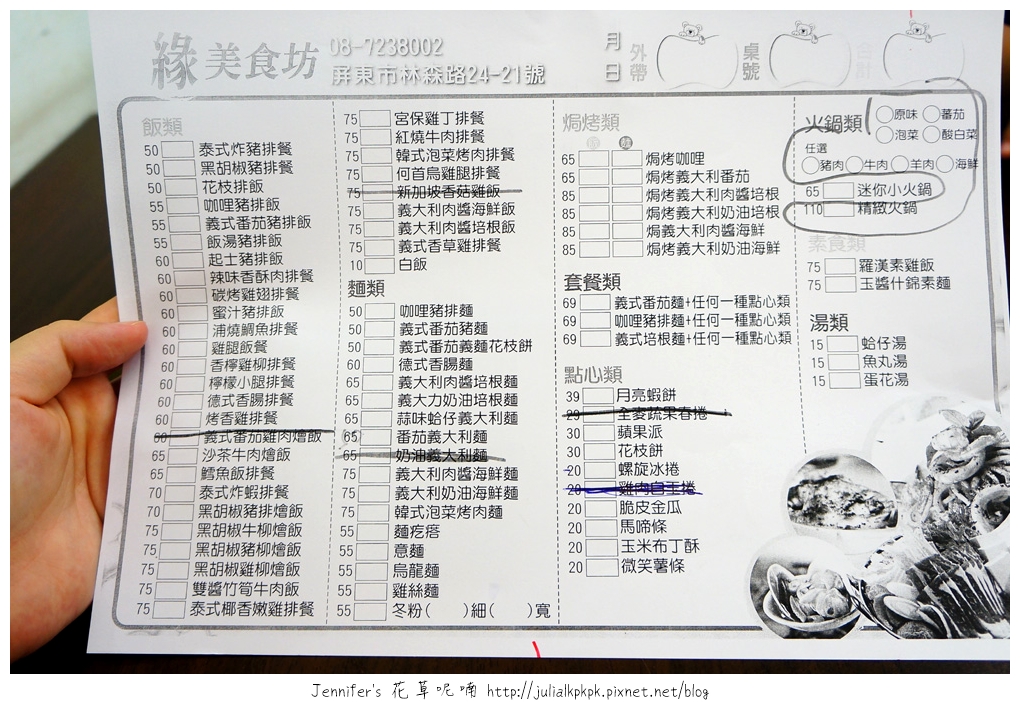 緣 美食坊 08-7238002
屏東市林森路24-21號
月 日 外帶 桌號 合計
飯類
50 泰式炸豬排餐
50 黑胡椒豬排餐
50 花枝排飯
55 咖哩豬排飯
55 義式番茄豬排飯
55 飯湯豬排飯
60 起士豬排飯
60 辣味香酥肉排餐
60 碳烤雞翅排餐
60 蜜汁豬排飯
60 浦燒鯛魚排餐
60 雞腿飯餐
60 香檸雞柳排餐
60 檸檬小腿排餐
60 德式香腸排餐
60 烤香雞排餐
60 義式番茄雞肉燴飯
65 沙茶牛肉燴飯
65 鱈魚飯排餐
70 泰式炸蝦排餐
70 黑胡椒豬排燴飯
75 黑胡椒牛柳燴飯
75 黑胡椒豬柳燴飯
75 黑胡椒雞柳燴飯
75 雙醬竹筍牛肉飯
75 泰式椰香嫩雞排餐
75 宮保雞丁排餐
75 紅燒牛肉排餐
75 韓式泡菜烤肉排餐
75 何首烏雞腿排餐
75 新加坡香菇雞飯
75 義大利肉醬海鮮飯
75 義大利肉醬培根飯
75 義式香草雞排餐
10 白飯
麵類
50 咖哩豬排麵
50 義式番茄豬麵
50 義式番茄義麵花枝餅
60 德式香腸麵
65 義大利肉醬培根麵
65 義大力奶油培根麵
65 蒜味蛤仔義大利麵
65 番茄義大利麵
65 奶油義大利麵
75 義大利肉醬海鮮麵
75 義大利奶油海鮮麵
75 韓式泡菜烤肉麵
55 麵疙瘩
55 意麵
55 烏龍麵
55 雞絲麵
55 冬粉( )細( )寬
焗烤類
飯 麵
65 焗烤咖哩
65 焗烤義大利番茄
85 焗烤義大利肉醬培根
85 焗烤義大利奶油培根
85 焗義大利肉醬海鮮
85 焗烤義大利奶油海鮮
套餐類
69 義式番茄麵+任何一種點心類
69 咖哩豬排麵+任何一種點心類
69 義式培根麵+任何一種點心類
點心類
39 月亮蝦餅
29 全麥蔬果春捲
30 蘋果派
30 花枝餅
20 螺旋冰捲
20 雞肉白玉捲
20 脆皮金瓜
20 馬啼條
20 玉米布丁酥
20 微笑薯條
火鍋類 原味 蕃茄
泡菜 酸白菜
任選
豬肉 牛肉 羊肉 海鮮
65 迷你小火鍋
110 精緻火鍋
素食類
75 羅漢素雞飯
75 玉醬什錦素麵
湯類
15 蛤仔湯
15 魚丸湯
15 蛋花湯
Jennifer's 花草呢喃 http://julialkpkpk.pixnet.net/blog